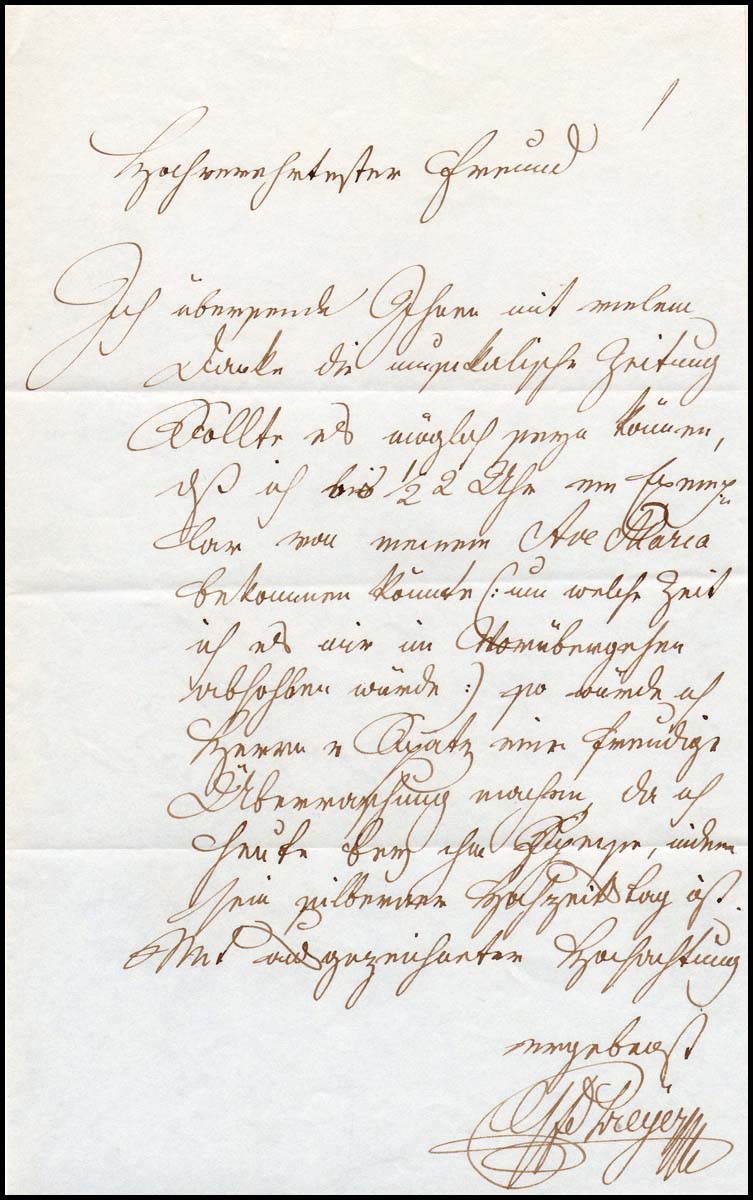 Hochverehrtester Freund
Ich übersende Ihnen mit vielem
Danke die musikalische Zeitung
Sollte es möglich seyn können,
daß ich bis 1/2 2 Uhr ein Exemp=
lar von meinem Ave Maria
bekommen könnte (: um welche Zeit
ich es mir im Vorübergehen
abhohlen würde :) so würde ich
Herrn v Spatz eine freudige
Überraschung machen, da ich
heute bey ihm speise, indem
sein silberner Hochzeitstag ist.
Mit ausgezeichneter Hochachtung
ergebenst
Preyer